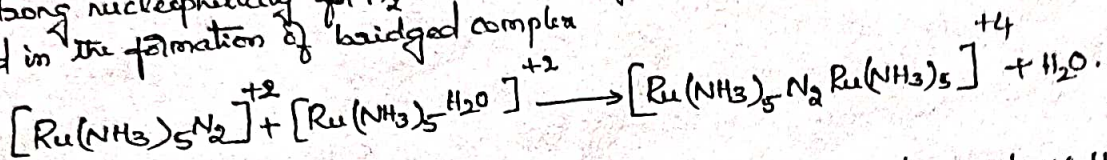 strong nucleophilicity
in the formation of bridged complex
[Ru(NH3)5N2]+2 + [Ru(NH3)5H2O]+2 → [Ru(NH3)5N2Ru(NH3)5]+4 + H2O.